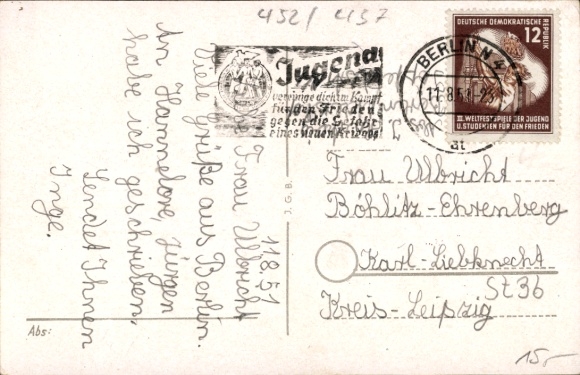 452/457
11.8.51
Frau Ulbricht
Viele Grüße aus Berlin.
An Hannelore, Jürgen
habe ich geschrieben,
Sendet Ihnen
Inge.
Abs:
J. G. B.
Jugend
vereinige dich im Kampf
für den Frieden
gegen die Gefahr
eines neuen Krieges!
BERLIN N 4
11.8.51
at
DEUTSCHE DEMOKRATISCHE
REPUBLIK
12
III. WELTFESTSPIELE DER JUGEND
U. STUDENTEN FÜR DEN FRIEDEN
Frau Ulbricht
Böhlitz-Ehrenberg
Karl-Liebknecht
St 36
Kreis-Leipzig
15,-